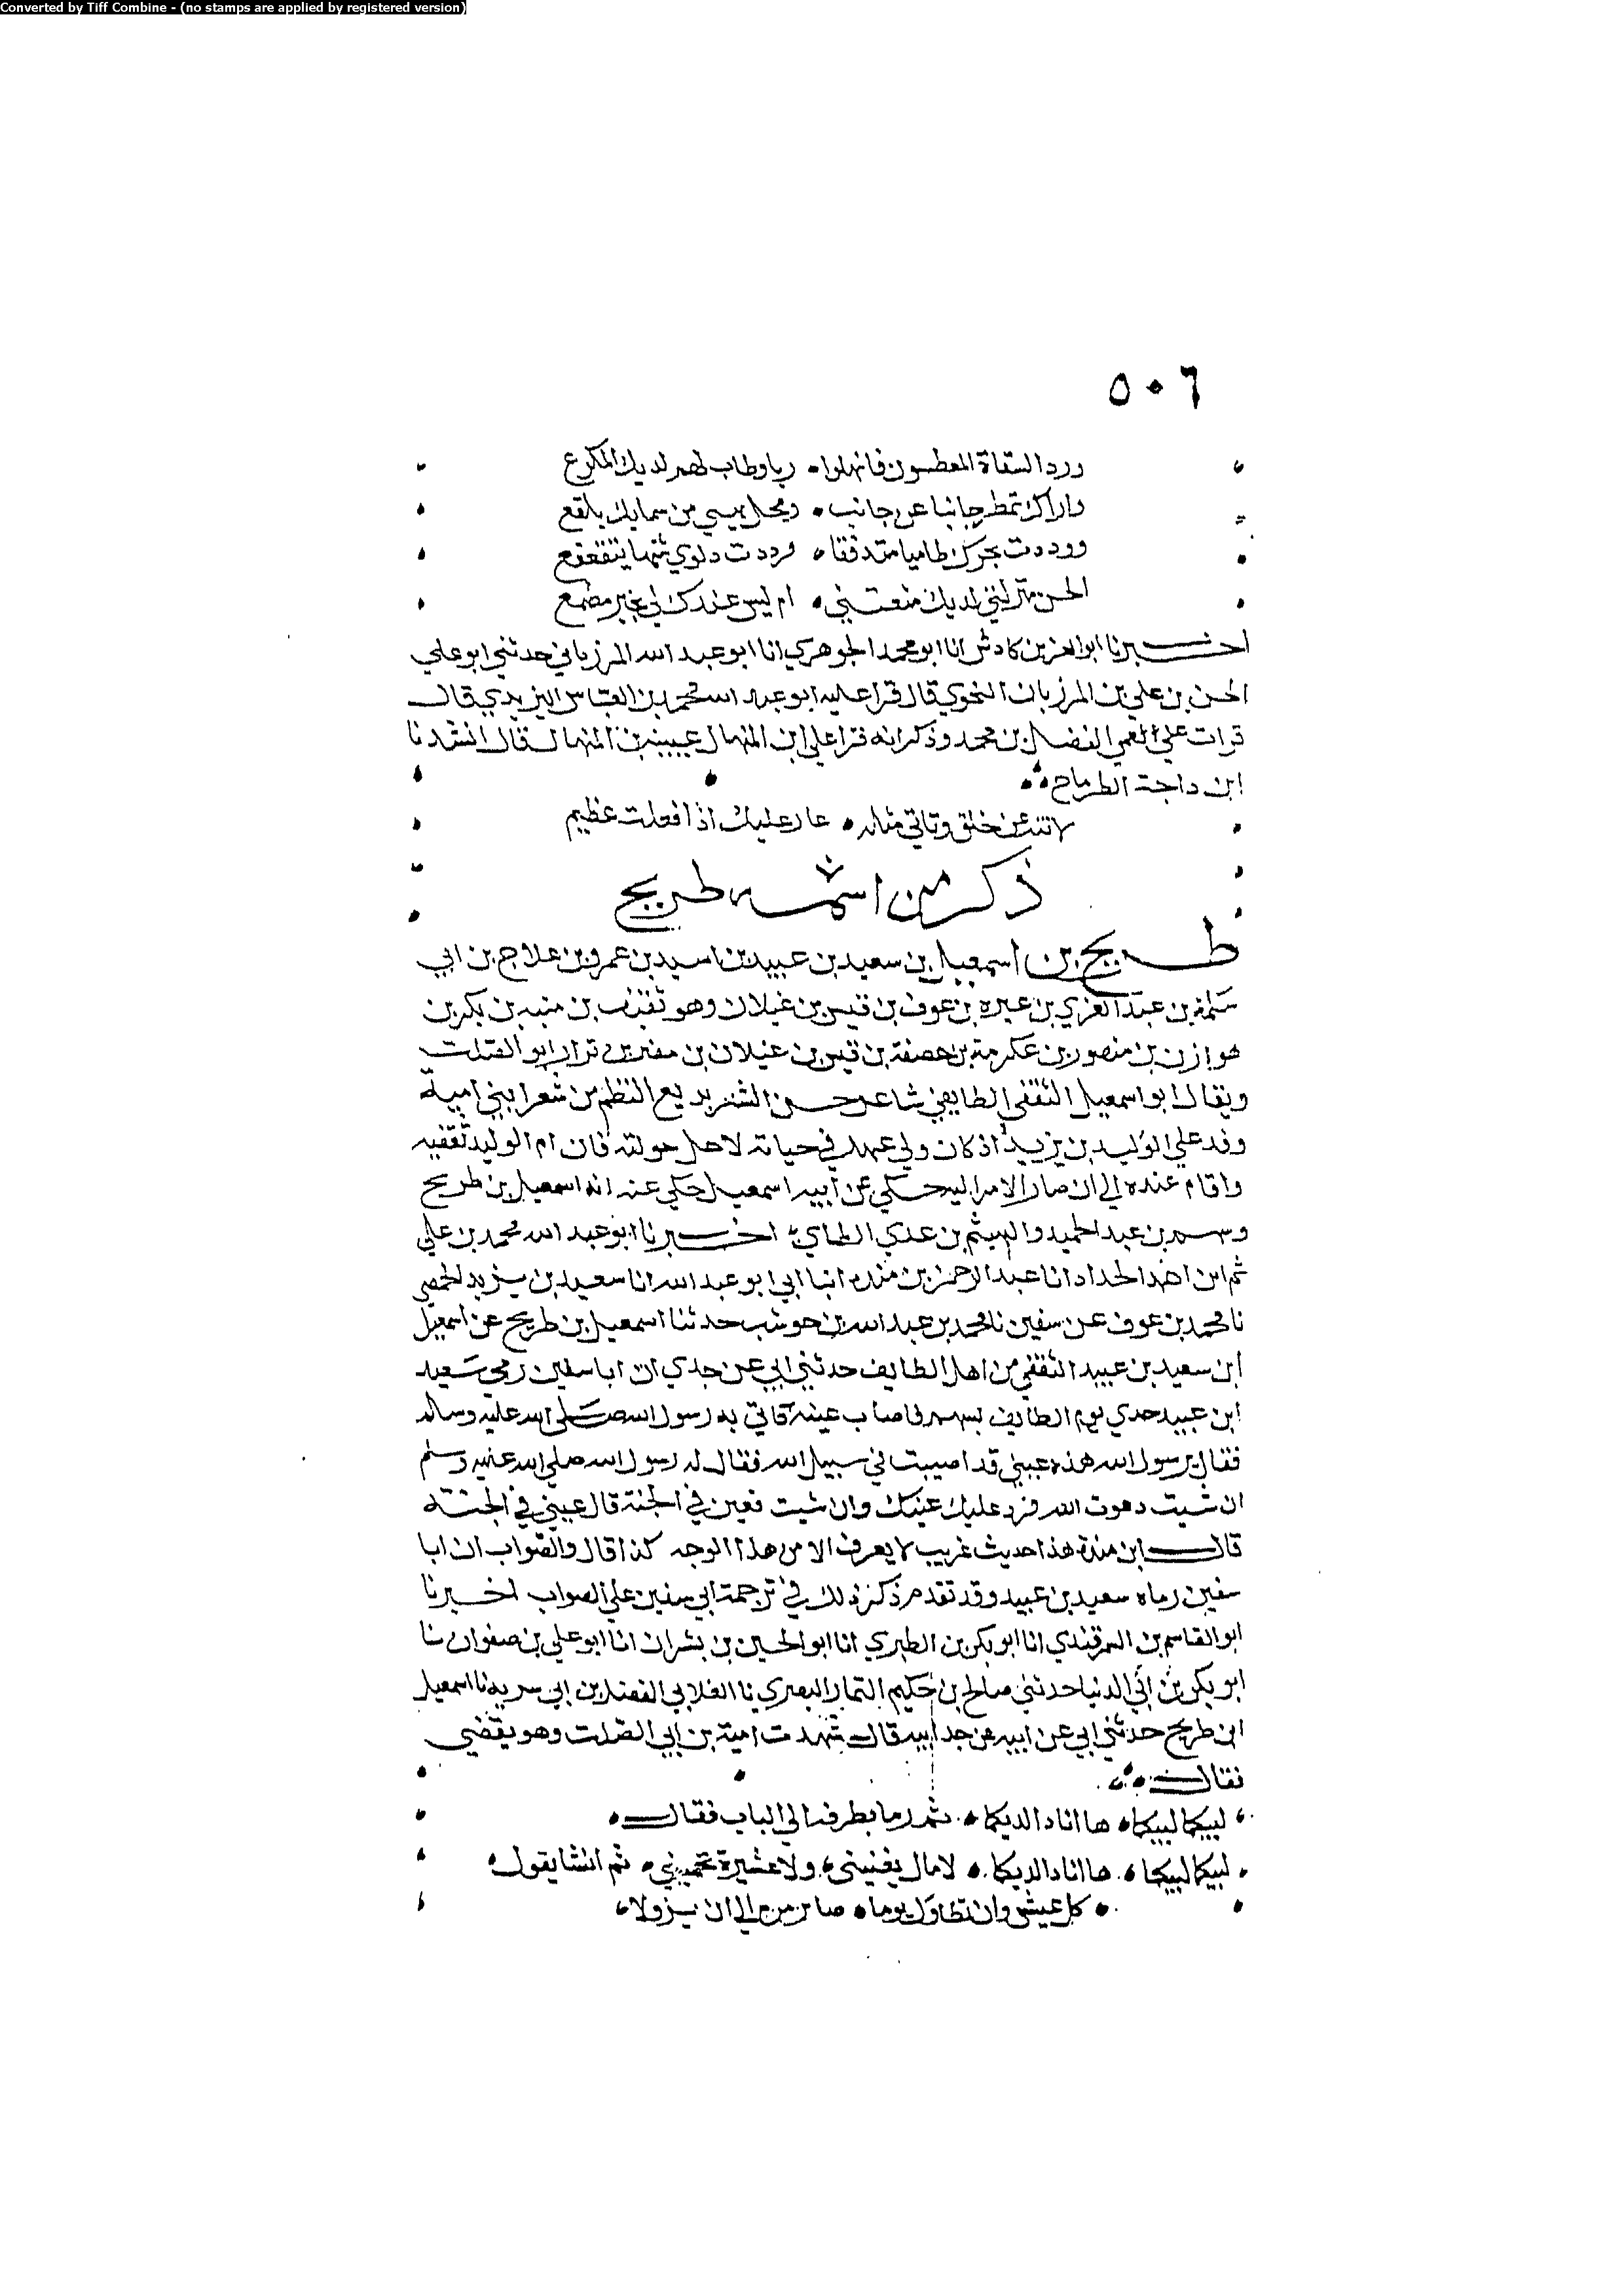 Converted by Tiff Combine - (no stamps are applied by registered version)
٥٠٦
ورد السقاة المعطسون فانهلوا ريا وطاب لهم لديك المكرع
واراك تمطر جانبا عن جانب ومحل بيتي من سمايك بلقع
ووردت بحرك طاميا متدفقا فرددت دلوي شنها يتقعقع
الحسن منزلتي لديك منعتني ام ليس عندك لي بخير مطمع
اخبرنا ابو العز بن كادش انا ابو محمد الجوهري انا ابو عبد الله المرزباني حدثني ابو علي
الحسن بن علي بن المرزبان النحوي قال قرا عليه ابو عبد الله محمد بن العباس اليزيدي قال
قرات على العمي الفضل بن محمد وذكر انه قرا على ابن المنهال عيينه بن المنهال قال انشدنا
ابن داجة الطرماح
لا تنه عن خلق وتاتي مثله عار عليك اذا فعلت عظيم
ذكر من اسمه طريح
طريح بن اسمعيل بن سعيد بن عبيد بن اسيد بن عمرو بن علاج بن ابي
سلمة بن عبد العزي بن عيره بن عوف بن قيس بن غيلان وهو ثقيف بن منبه بن بكر بن
هوازن بن منصور بن عكرمة بن خصفة بن قيس بن عيلان بن مضر بن نزار ابو الصلت
ويقال ابو اسمعيل الثقفي الطايفي شاعر حسن الشعر بديع النظم من شعرا بني امية
وفد علي الوليد بن يزيد اذ كان ولي عهد في حياته لاجل خولته فان ام الوليد ثقفيه
واقام عنده الي ان صار الامر اليه حكي عن ابيه اسمعيل حكي عنه ابنه اسمعيل بن طريح
وسهم بن عبد الحميد والهيثم بن عدي الطاي اخبرنا ابو عبد الله محمد بن علي
ثم ابن احمد الحداد انا عبد الرحمن بن منده انبا ابي ابو عبد الله انا سعيد بن يزيد الحمصي
نا محمد بن عوف عن سفين نا محمد بن عبد الله بن حوشب حدثنا اسمعيل بن طريح عن اسمعيل
ابن سعيد بن عبيد الثقفي من اهل الطايف حدثني ابي عن جدي ان ابا سفين رمي سعيد
ابن عبيد جدي يوم الطايف بسهم فاصاب عينه فاتي به رسول الله صلى الله عليه وسلم
فقال يرسول الله هذه عيني قد اصيبت في سبيل الله فقال له رسول الله صلي الله عليه وسلم
ان شيت دعوت الله فرد عليك عينك وان شيت فعين في الجنة قال عيني في الجنة
قال ابن منده هذا حديث غريب لا يعرف الا من هذا الوجه كذا قال والصواب ان ابا
سفين رماه سعيد بن عبيد وقد تقدم ذكر ذلك في ترجمة ابي سفين علي الصواب اخبرنا
ابو القاسم بن السمرقندي انا ابو بكر بن الطبري انا ابو الحسين بن بشران انا ابو علي بن صفوان نا
ابو بكر بن ابي الدنيا حدثني صالح بن حكيم التمار البصري نا العلا بن الفضل بن ابي سريه نا اسمعيل
ابن طريح حدثني ابي عن ابيه عن جد ابيه قال شهدت امية بن ابي الصلت وهو يقضي
فقال
لبيكما لبيكما ها انا ذا لديكما ثم رما بطرفه الي الباب فقال
لبيكما لبيكما ها انا ذا لديكما لا مال يغنيني ولا عشيرة تحميني ثم انشا يقول
كل عيش وان تطاول يوما صاير من الي ان يزولا